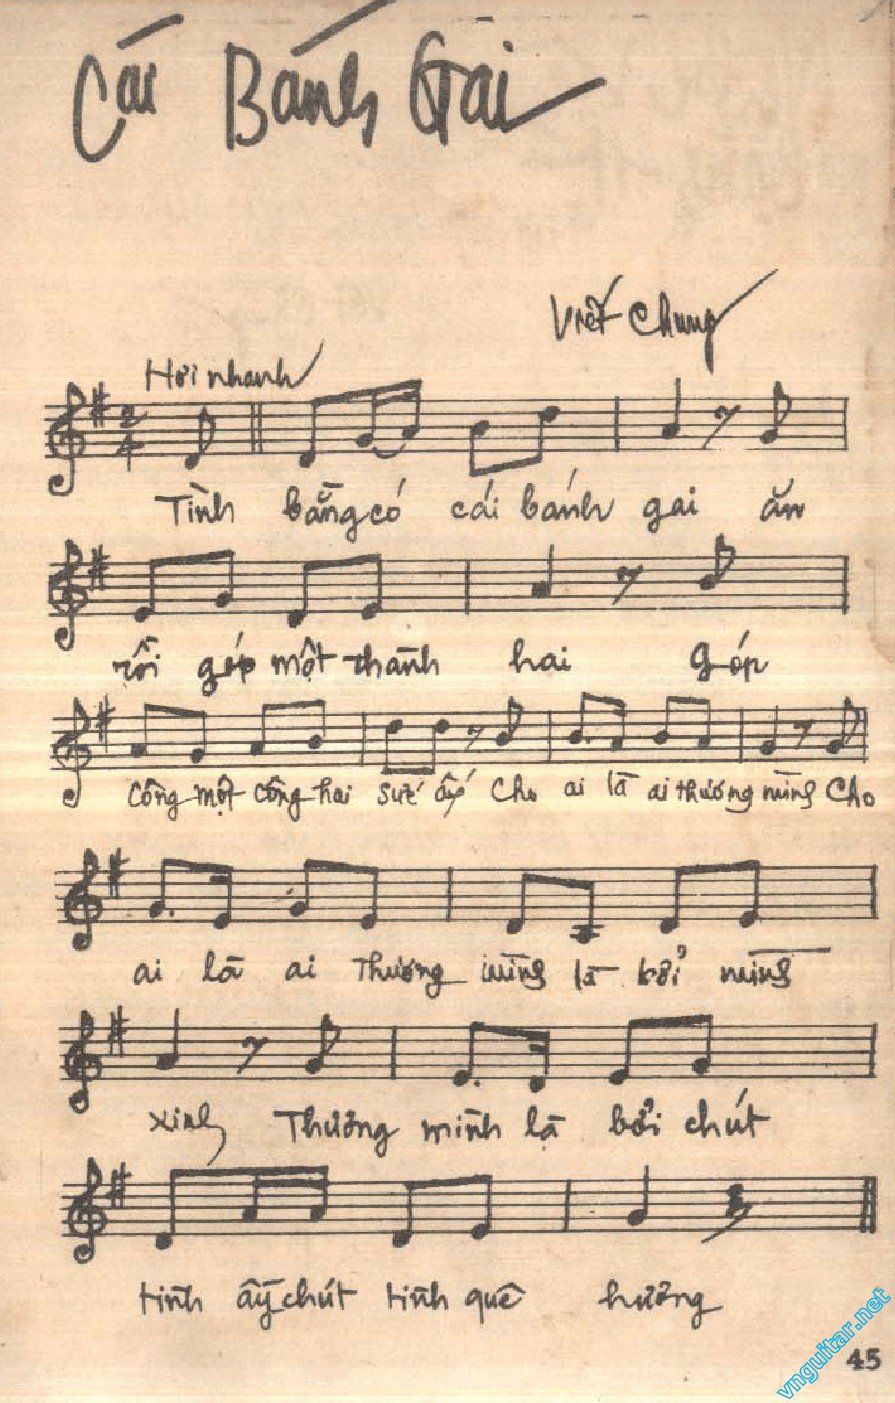 Cái Bánh Gai
Viết Chung
Hơi nhanh
2
4
Tình bằng có cái bánh gai ăn
rồi góp một thành hai Góp
công một công hai sức ấy cho ai là ai thương mình cho
ai là ai thương mình là bởi mình
xinh Thương mình là bởi chút
tình ấy chút tình quê hương
45
vnguitar.net